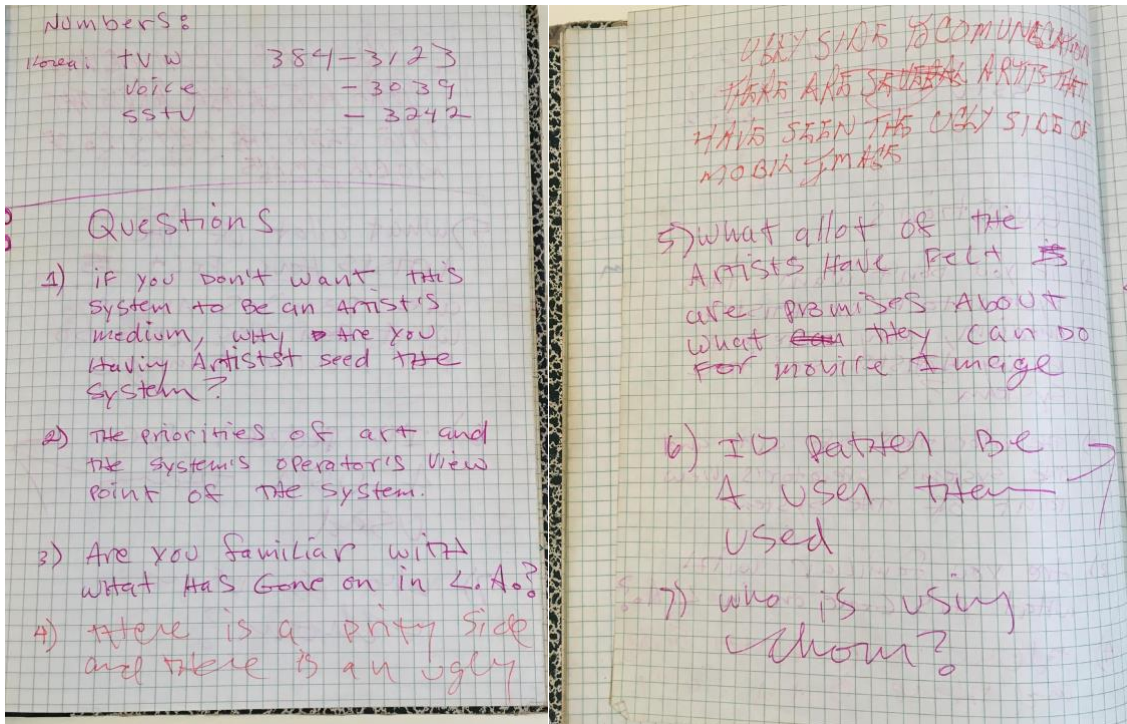 Numbers:
Korea: tvw 384-3123
voice -3039
sstv - 3242
Questions
1) if you Don't want this
system to Be an Artist's
medium, why Are you
Having Artistst seed the
system?
2) The priorities of art and
the system's operator's view
point of the system.
3) Are you familiar with
what Has Gone on in L.A.?
4) there is a prity side
and there is an ugly
UGLY SIDE TO COMUNICATION
THERE ARE SEVERAL ARTITS THAT
HAVE SEEN THE UGLY SIDE OF
MOBIL IMAGE
5) what allot of the
Artists Have Felt is
are promises About
what can they can DO
For mobile Image
6) I'D Rather Be
A user then
used
7) who is using
whom?